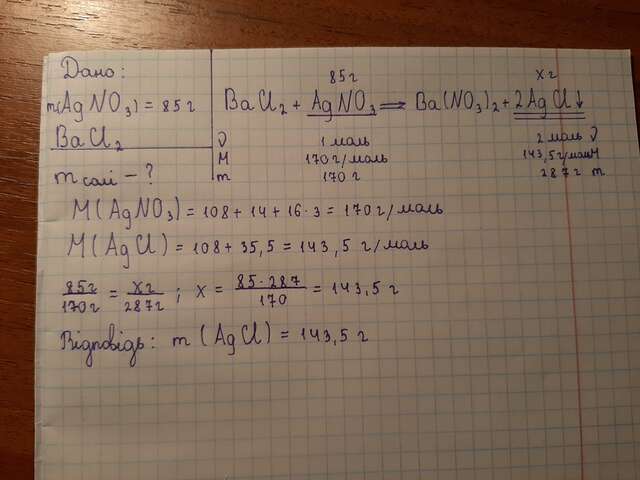 Дано:
m(AgNO3) = 85 г
BaCl2
m солі - ?
85 г x г
BaCl2 + AgNO3 = Ba(NO3)2 + 2AgCl↓
ν 1 моль 2 моль ν
M 170 г/моль 143,5 г/моль M
m 170 г 287 г m
M(AgNO3) = 108 + 14 + 16·3 = 170 г/моль
M(AgCl) = 108 + 35,5 = 143,5 г/моль
85г/170г = xг/287г ; x = 85·287/170 = 143,5 г
Відповідь: m (AgCl) = 143,5 г